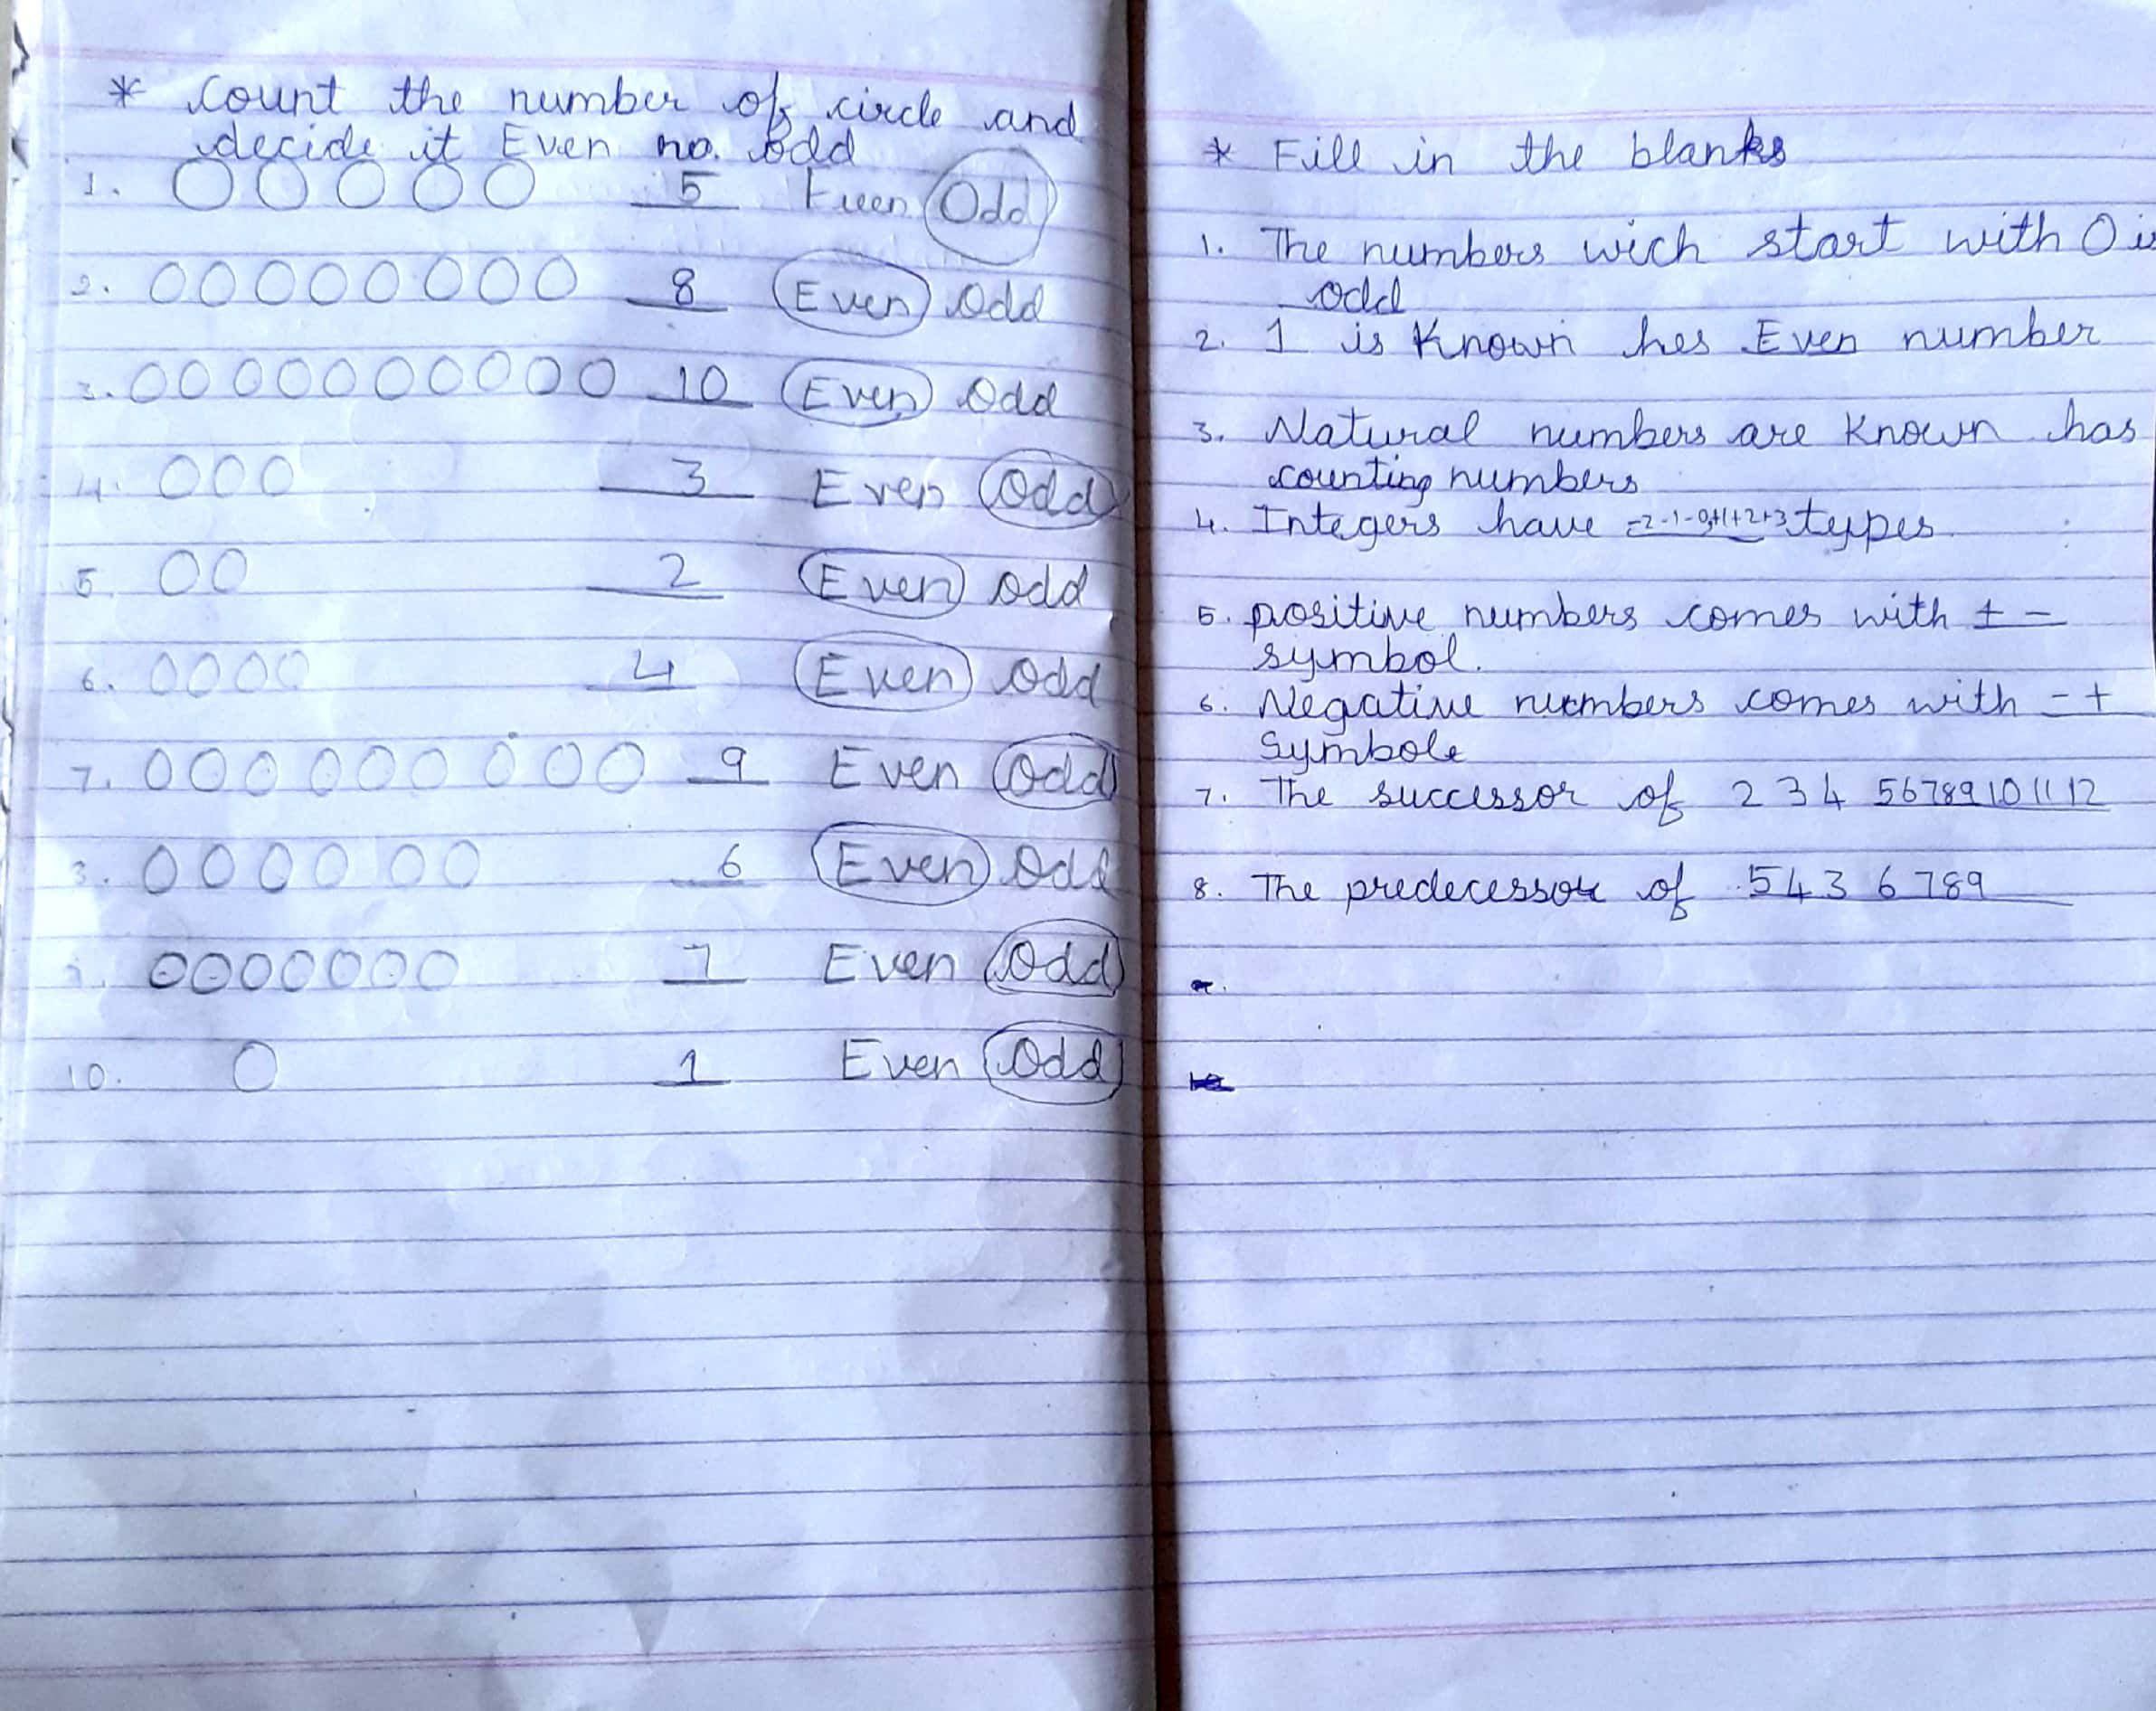 * Count the number of circle and
decide it Even no. Odd
1. O O O O O 5 Even Odd
2. O O O O O O O O 8 Even Odd
3. O O O O O O O O O O O 10 Even Odd
4. O O O 3 Even Odd
5. O O 2 Even Odd
6. O O O O 4 Even Odd
7. O O O O O O O O O 9 Even Odd
8. O O O O O O 6 Even Odd
9. O O O O O O O 7 Even Odd
10. O 1 Even Odd
* Fill in the blanks
1. The numbers wich start with 0 is
odd
2. 1 is Known hes Even number
3. Natural numbers are Known has
counting numbers
4. Integers have -2-1-0+1+2+3 types
5. positive numbers comes with + -
symbol.
6. Negative numbers comes with - +
Symbole
7. The successor of 2 3 4 5 6 7 8 9 10 11 12
8. The predecessor of 5 4 3 6 7 8 9